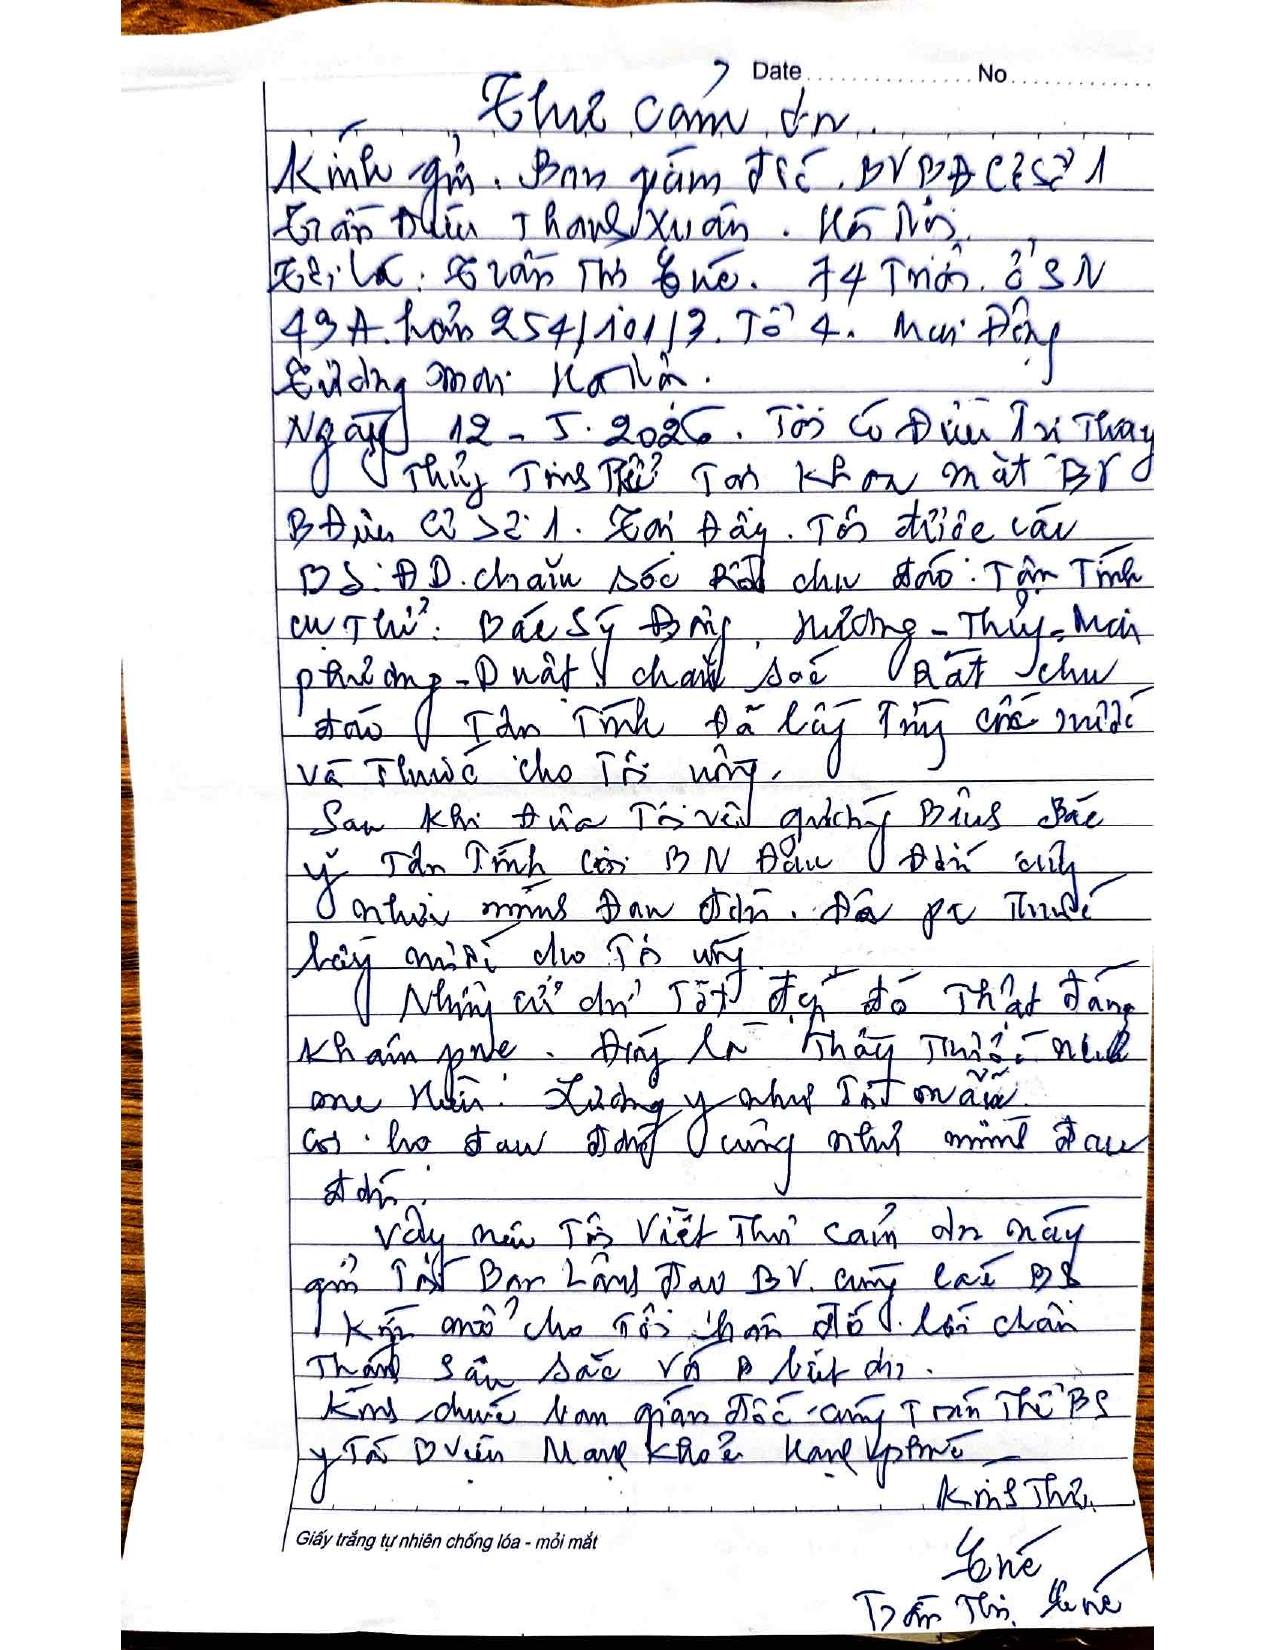 Date No
Thư cảm ơn
Kính gửi. Ban giám đốc. BVBĐ Cơ Sở 1
Trần Điền Thanh Xuân. Hà Nội.
Tôi là: Trần Thị Quế. 74 Tuổi. ở SN
49A. hẻm 254/101/3. Tổ 4. Mai Động
Tương Mai Hà Nội.
Ngày 12-5.2026. Tôi có Điều Trị Thay
Thủy Tinh Thể Tại Khoa mắt BV
BĐiện Cơ Sở 1. Tại Đây. Tôi được các
BS: ĐD. chăm sóc Rất chu đáo: Tận Tình
cụ Thể: Bác Sỹ Hương - Thủy - Mai
phương - chăm sóc Rất chu
đáo Tận Tình Đã lấy Từng cốc nước
và Thuốc cho Tôi uống.
Sau khi Đưa Tôi về Bác
sỹ Tận Tình coi BN Đau Đớn cũng
như mình Đau đớn. Đã Thuốc
lấy nước cho Tôi uống.
Những cử chỉ Tốt đẹp đó Thật đáng
Khâm phục. Đúng là Thầy Thuốc như
mẹ Hiền. Lương y như Từ mẫu.
Coi họ đau đớn cũng như mình đau
đớn.
Vậy nên Tôi Viết Thư cảm ơn này
gửi Tới Ban Lãnh đạo BV. cùng các BS
Kíp mổ cho Tôi hôm đó. lời chân
Thành Sâu sắc Và Biết ơn.
Kính chúc ban giám đốc cùng Toàn Thể BS
y Tá BViện Mạnh Khoẻ Hạnh phúc
Kính Thư.
Quế
Trần Thị Quế
Giấy trắng tự nhiên chống lóa - mỏi mắt